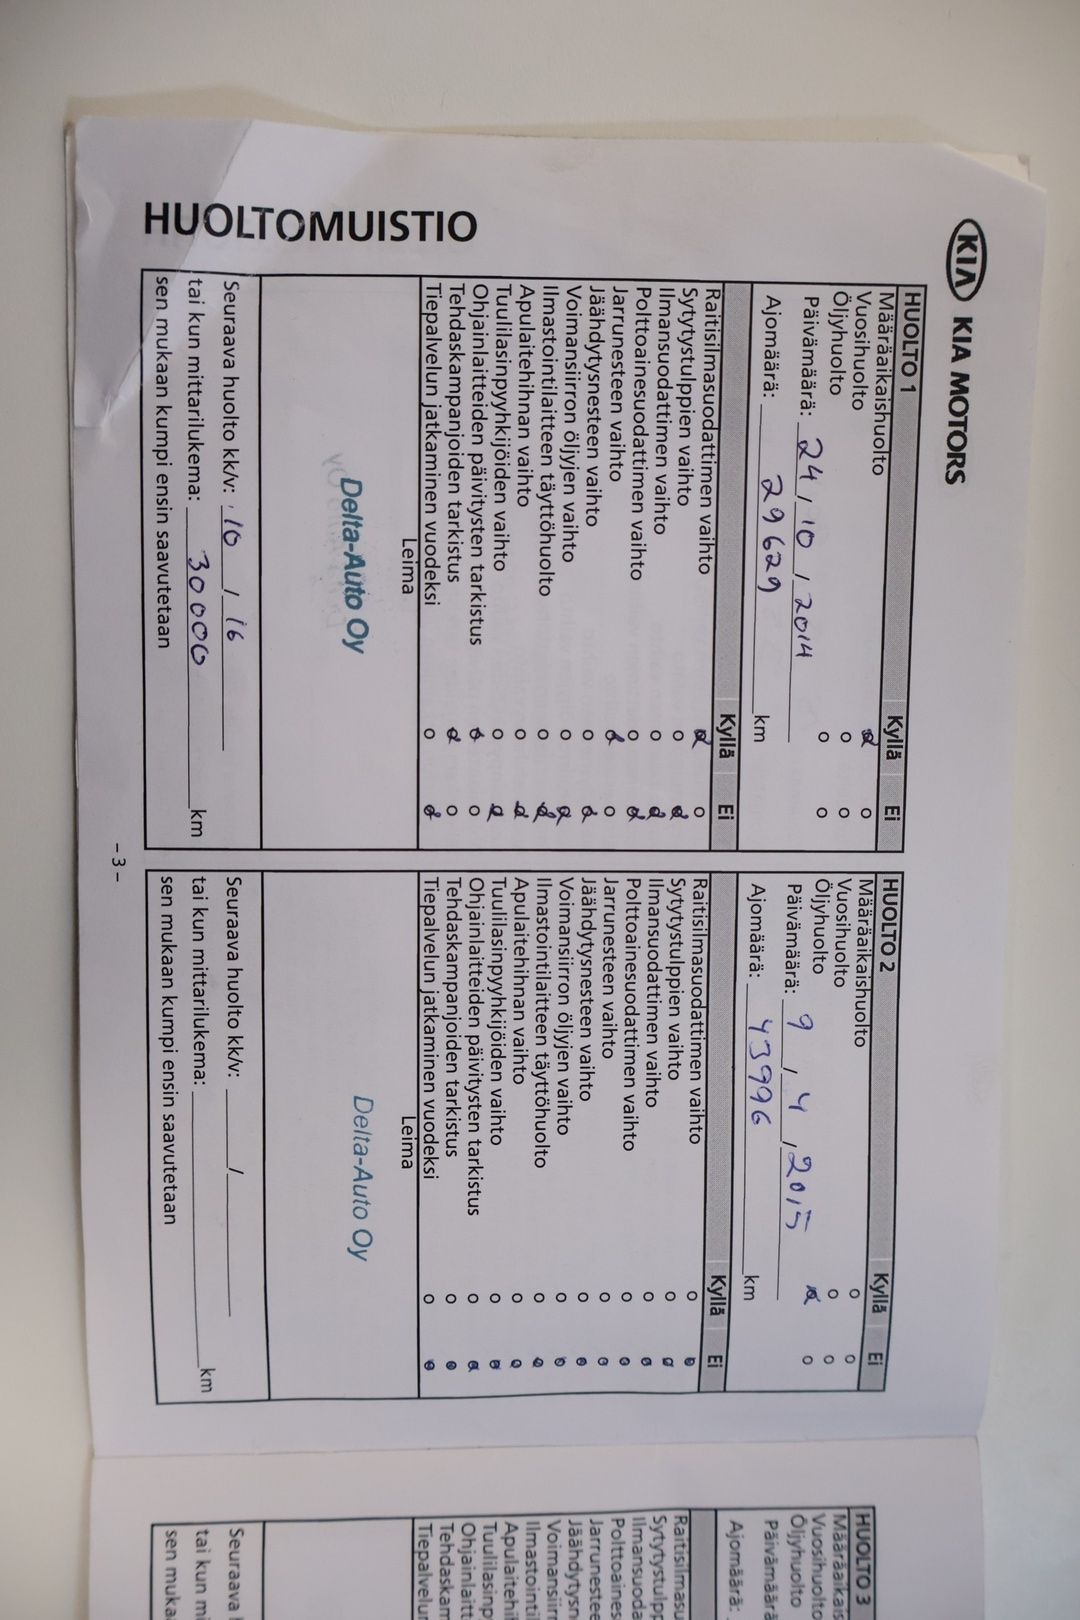 KIA KIA MOTORS
HUOLTOMUISTIO
HUOLTO 1 Kyllä Ei
Määräaikaishuolto
Vuosihuolto
Öljyhuolto
Päivämäärä: 24 / 10 / 2014
Ajomäärä: 29629 km
Kyllä Ei
Raitisilmasuodattimen vaihto
Sytytystulppien vaihto
Ilmansuodattimen vaihto
Polttoainesuodattimen vaihto
Jarrunesteen vaihto
Jäähdytysnesteen vaihto
Voimansiirron öljyjen vaihto
Ilmastointilaitteen täyttöhuolto
Apulaitehihnan vaihto
Tuulilasinpyyhkijöiden vaihto
Ohjainlaitteiden päivitysten tarkistus
Tehdaskampanjoiden tarkistus
Tiepalvelun jatkaminen vuodeksi
Leima
Delta-Auto Oy
Seuraava huolto kk/v: 10 / 16
tai kun mittarilukema: 30 000 km
sen mukaan kumpi ensin saavutetaan
HUOLTO 2 Kyllä Ei
Määräaikaishuolto
Vuosihuolto
Öljyhuolto
Päivämäärä: 9 / 4 / 2015
Ajomäärä: 43996 km
Kyllä Ei
Raitisilmasuodattimen vaihto
Sytytystulppien vaihto
Ilmansuodattimen vaihto
Polttoainesuodattimen vaihto
Jarrunesteen vaihto
Jäähdytysnesteen vaihto
Voimansiirron öljyjen vaihto
Ilmastointilaitteen täyttöhuolto
Apulaitehihnan vaihto
Tuulilasinpyyhkijöiden vaihto
Ohjainlaitteiden päivitysten tarkistus
Tehdaskampanjoiden tarkistus
Tiepalvelun jatkaminen vuodeksi
Leima
Delta-Auto Oy
Seuraava huolto kk/v: /
tai kun mittarilukema: km
sen mukaan kumpi ensin saavutetaan
- 3 -
HUOLTO 3
Määräaikais
Vuosihuolto
Öljyhuolto
Päivämäärä
Ajomäärä:
Raitisilmasu
Sytytystulpp
Ilmansuoda
Polttoaines
Jarrunestee
Jäähdytysn
Voimansiirr
Ilmastointi
Apulaitehi
Tuulilasinp
Ohjainlaitt
Tehdaskam
Tiepalvelu
Seuraava
tai kun mi
sen muka